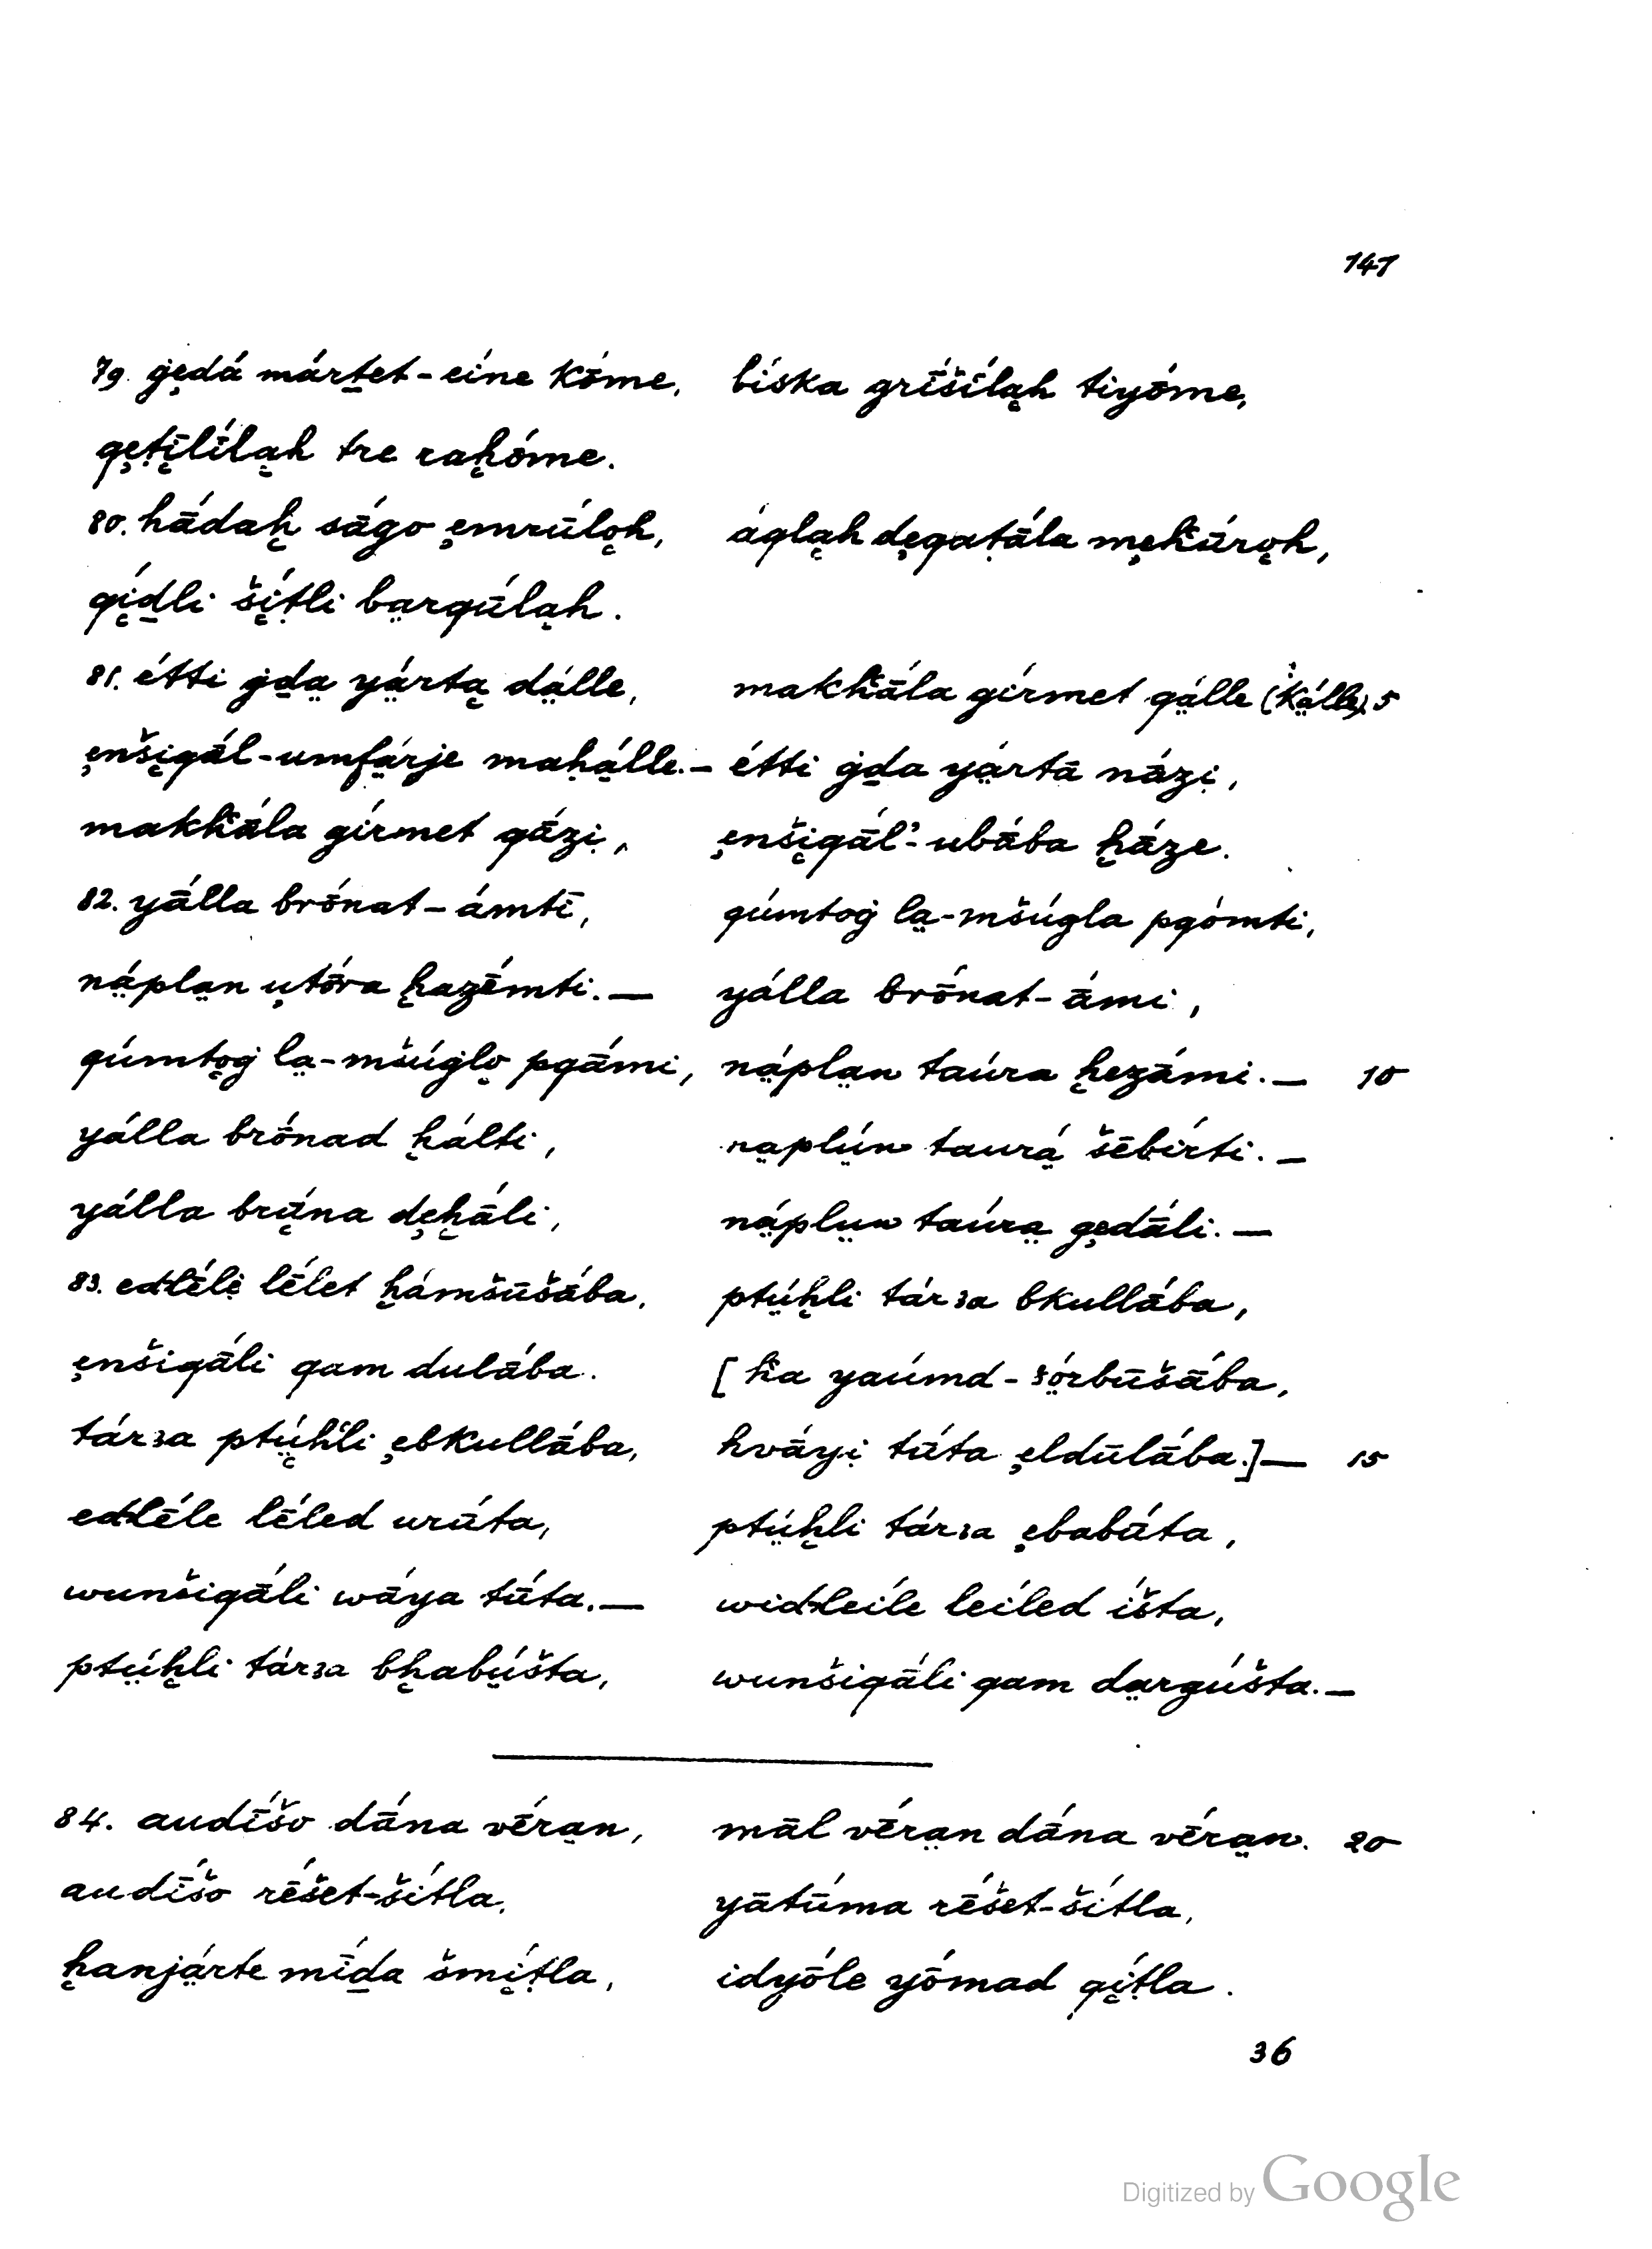 141
79. ġȩdá márṯet-eíne kṓme, bíska grī́šī́la̮h tiyṓme,
qȩṭī̮lī́la̮h tre raḫṓme.
80. hā́daḫ sā́go ȩmrū́lo̮h, áqla̮h dȩqaṭā́la mȩḣūŕo̮h,
qí̮ḏli ší̮ṭli ba̤rqū́la̮h.
81. étti ġḏa̤ yá̤rta̮ dá̤lle, makḣā́la gírmet qá̤lle (ká̤lle), 5
ȩnši̮qā́l-umfá̤rje maḥá̤lle.— étti ġḏa yá̤rtā nā́zi̤,
makḣā́la gírmet qā́zi̤, ȩnši̮qā́l'-ubā́ba ḫā́ze.
82. yā́lla brṓnat-ámtī, qúmtoġ la̤-mšúgla pqómti,
ná̤pla̤n u̧tṓra ḫazḗmti.— yálla brṓnat-ā́mi,
qúmto̮ġ la̤-mšúġlo̮ pqā́mi, ná̤pla̤n taúra ḫezā́mi.— 10
yálla brṓnad ḫálti, na̤plṳ́n taurá̤ šēbírti.—
yálla brṳ̄́na dȩḫā́li, ná̤plṳn taúra̤ gȩdā́li.—
83. edlḗli̤ lḗlet ḫámšūšā́ba, ptṳ́ḫli tárꜣa bkullā́ba,
ȩnšiqā́li qam dulā́ba. [ḣa yaúmd-ꜣó̤rbūšā́ba,
tárꜣa ptṳ́ḫli ȩbkullā́ba, hvā́yi̤ tū́ta ȩldūlā́ba.]— 15
edlḗle lḗled urū́ta, ptṳ́ḫli tárꜣa ȩbabū́ta,
wunšiqā́li wā́ya tū́ta.— widleíle leíled íšta,
ptṳ́ḫli tárꜣa bḫabṳ́šta, wunšiqā́li qam da̤rgúšta.—
84. audī́šo dā́na vḗra̤n, māl vḗra̤n dā́na vḗra̤n. 20
audī́šo rḗšet-šítla, yātū́ma rḗšet-šítla,
ḫanjá̤rte mī́ḏa šmí̮ṭla, idyṓle yṓmad qí̮ṭla.
36
Digitized by Google